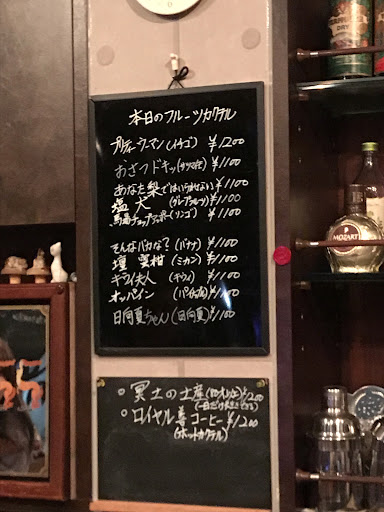 本日のフルーツカクテル
プリティーウーマン(イチゴ) ¥1200
おさつドキッ(サツマ芋) ¥1100
あなた梨ではいられない ¥1100
塩犬(グレープフルーツ) ¥1100
馬場チョップ(リンゴ) ¥1100
そんなバカな?(バナナ) ¥1100
壇蜜柑(ミカン) ¥1100
キウイ夫人(キウイ) ¥1100
オッパイン(パイナップル) ¥1100
日向夏ちゃん(日向夏) ¥1100
○冥土の土産 ¥1200
○ロイヤル毒コーヒー ¥1200
(ホットカクテル)
DRY
MOZART